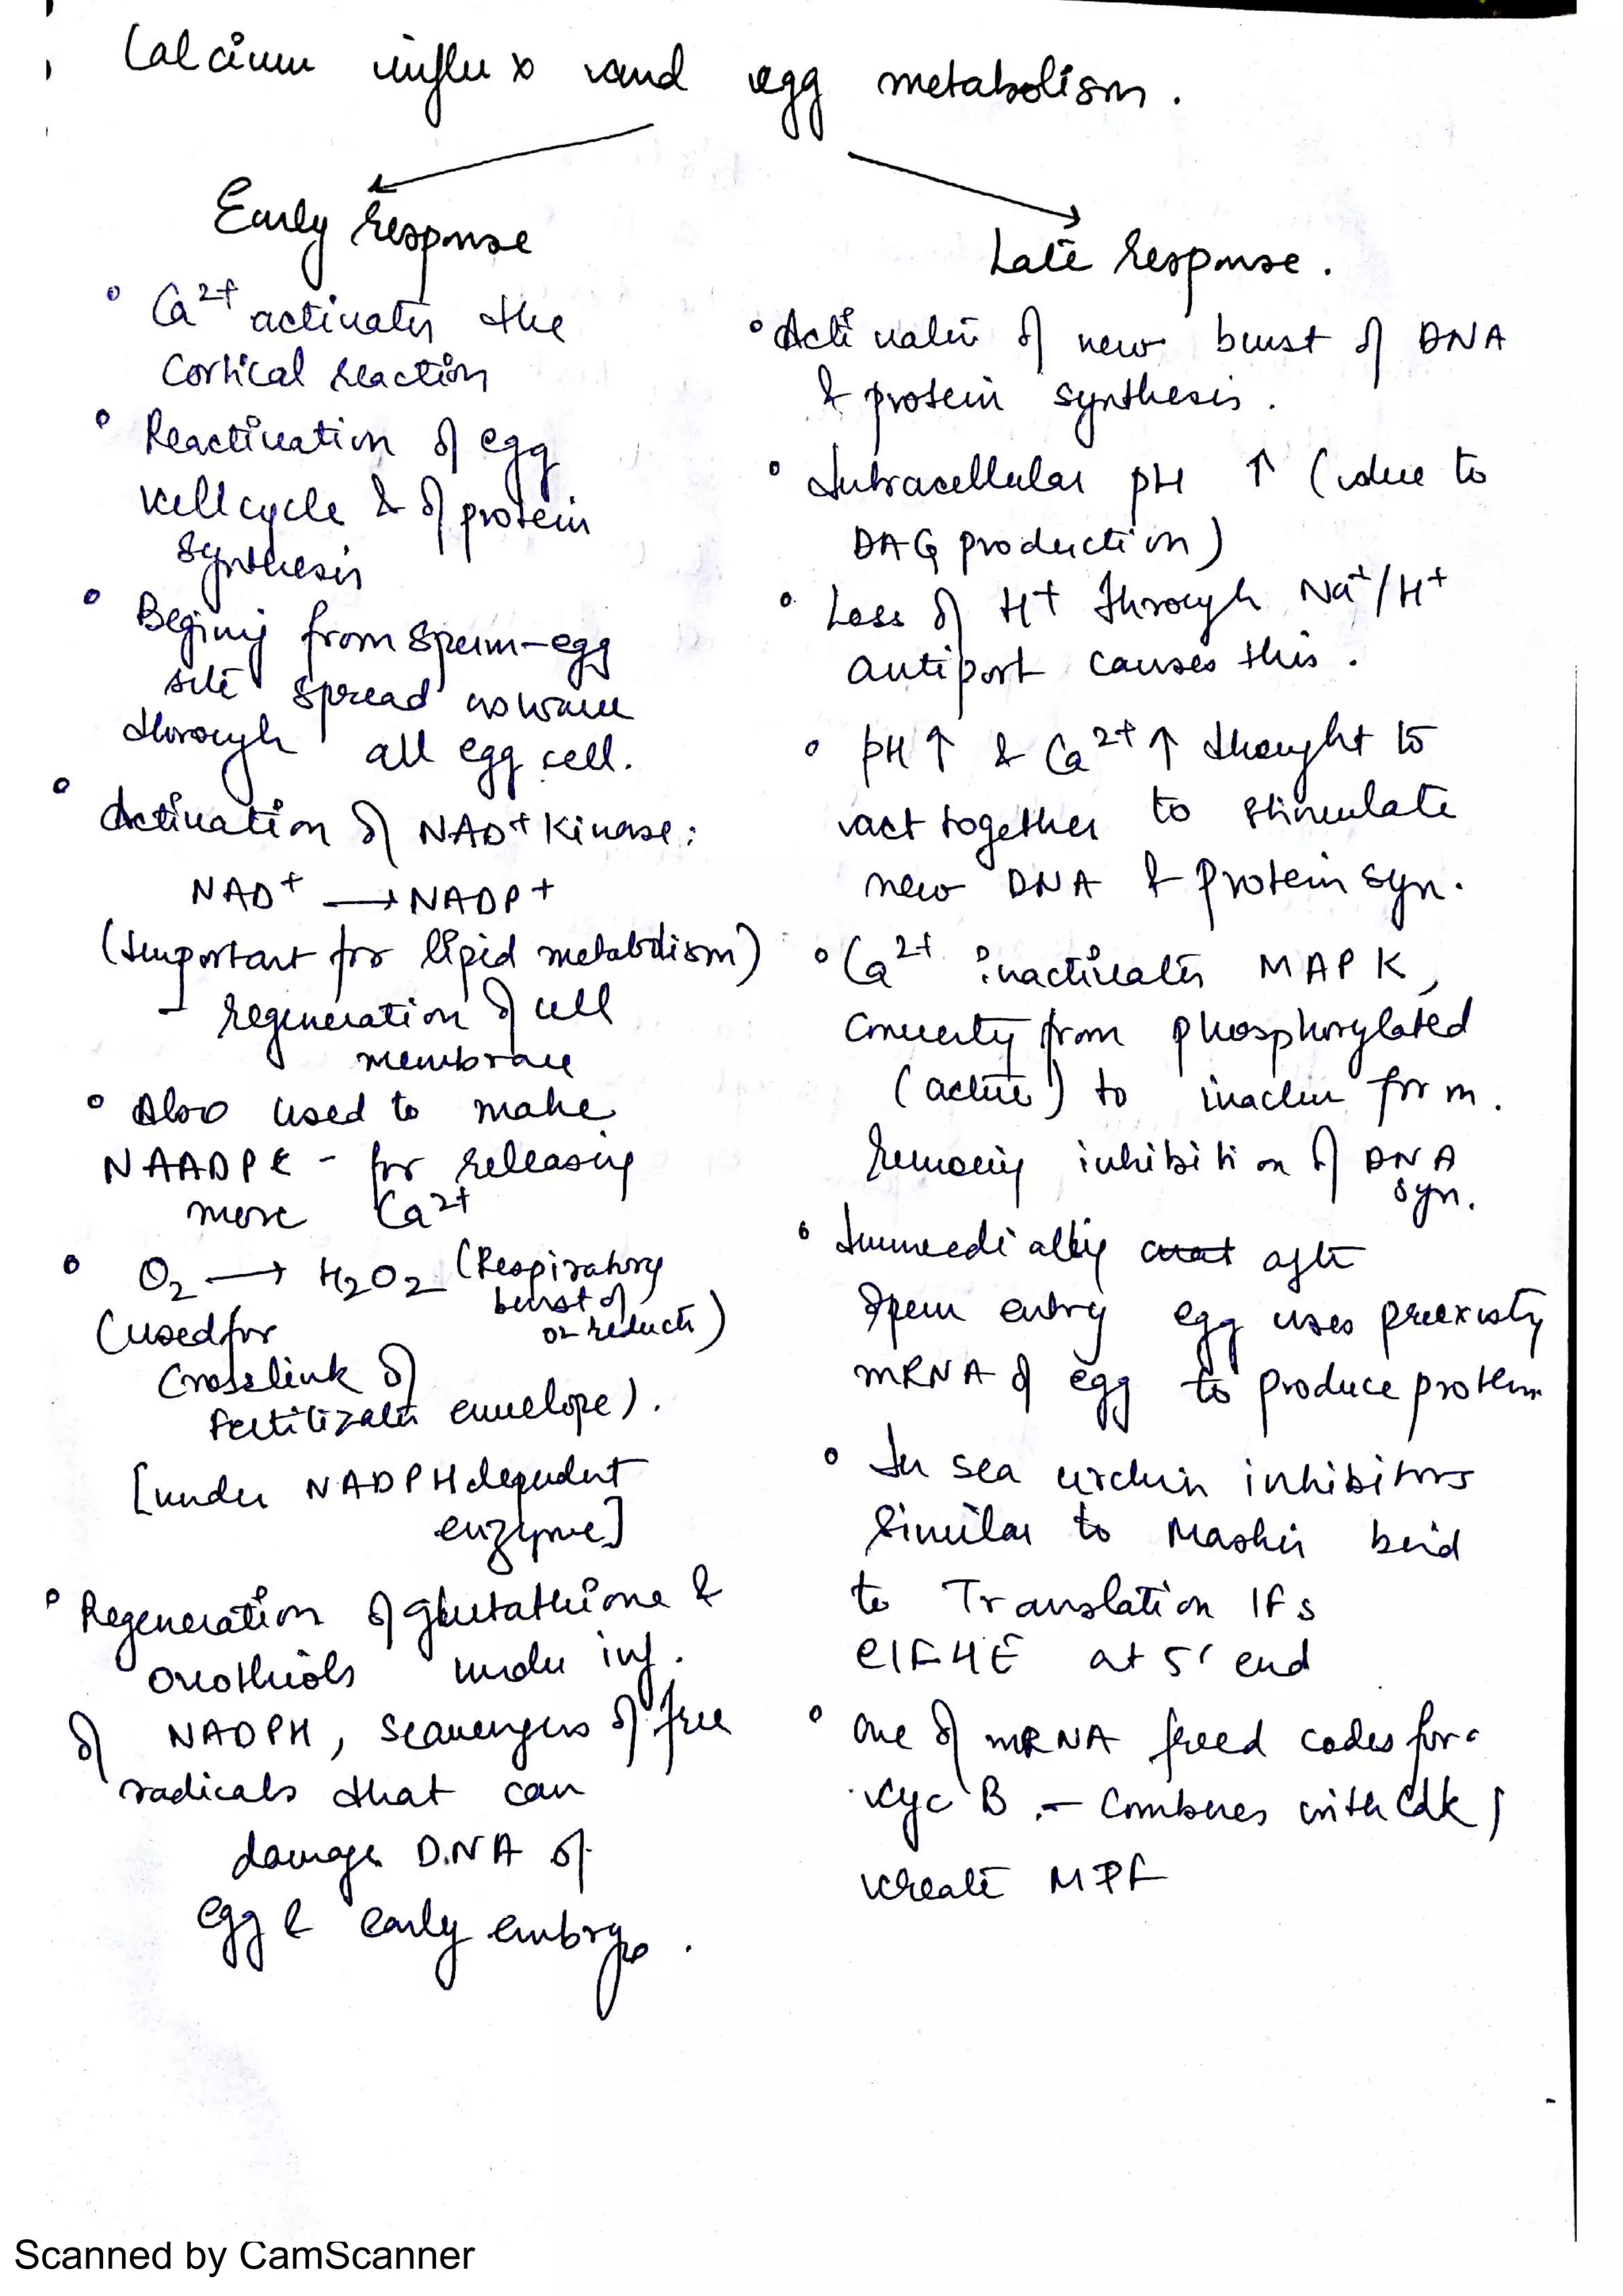 Calcium influx and egg metabolism.
Early response
° Ca2+ activates the
Cortical reaction
° Reactivation of egg
cell cycle & of protein
synthesis
° Begining from sperm-egg
site spread as wave
through all egg cell.
° Activation of NAD+ kinase:
NAD+ → NADP+
(Important for lipid metabolism)
- regeneration of cell
membrane
° Also used to make
NAADP - for releasing
more Ca2+
° O2 → H2O2 (Respiratory
burst of
or reductn)
(used for
Crosslink of
fertilizatn envelope).
[under NADPH dependent
enzyme]
° Regeneration of glutathione &
ovothiols under inf.
of NADPH, scavengers of free
radicals that can
damage DNA of
egg & early embryo.
Late response.
° Activatin of new burst of DNA
& protein synthesis.
° Intracellular pH ↑ (due to
DAG production)
° Loss of H+ through Na+/H+
antiport causes this.
° pH ↑ & Ca2+ ↑ thought to
act together to stimulate
new DNA & protein syn.
° Ca2+ inactivates MAPK,
Converty from phosphorylated
(active) to inactive form.
Removing inhibition of DNA
syn.
° Immediatly after
sperm entry egg uses preexisty
mRNA of egg to produce protein
° In sea urchin inhibitors
similar to Maskin bind
to Translation IFs
eIF4E at 5' end
° One of mRNA freed codes for
cyc B - Combines with Cdk
create MPF
Scanned by CamScanner